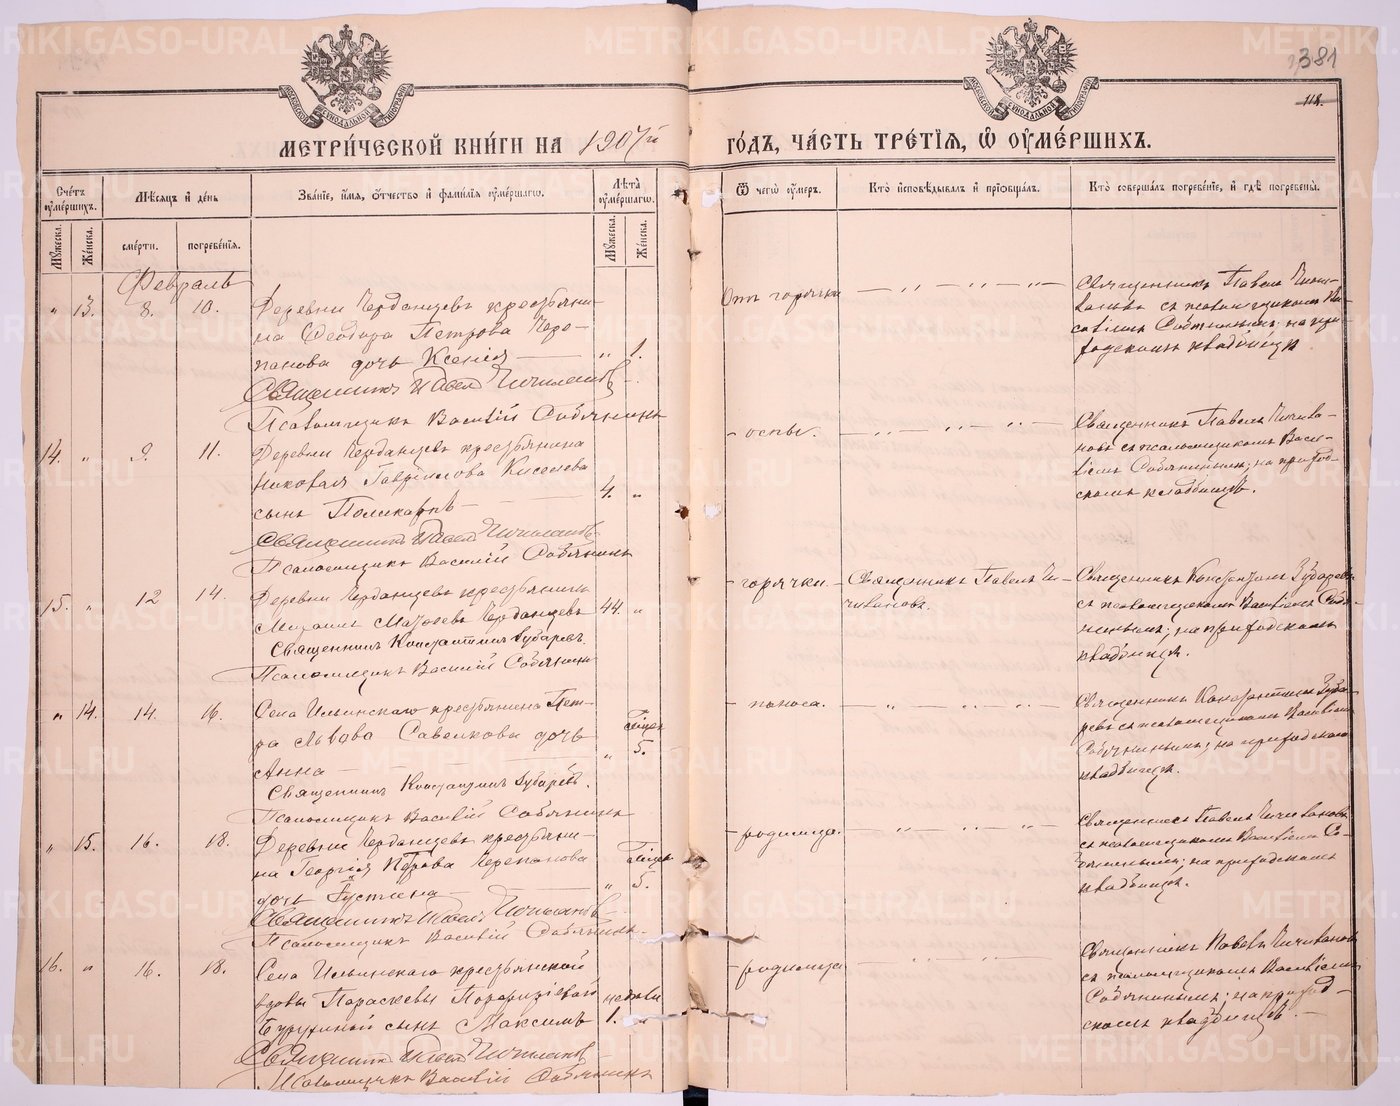 381
118.
МЕТРИ́ЧЕСКОЙ КНИ́ГИ НА 1907й ГО́ДЪ, ЧА́СТЬ ТРЕ́ТІЯ, Ѡ ОУМЕ́РШИХЪ.
Сче́тъ оуме́ршихъ.
Мѣ́сяцъ и де́нь
Зва́ніе, и́мя, о́тчество и фами́лія оуме́ршаго.
Лѣ́та оуме́ршаго.
Ѿ чегѡ̀ оу́меръ.
Кто̀ исповѣ́дывалъ и пріобща́лъ.
Кто̀ соверша́лъ погребе́ніе, и гдѣ̀ погребены̀.
Му́жеска.
Же́нска.
сме́рти.
погребе́нія.
Му́жеска.
Же́нска.
Февраль
" 13. 8. 10. Деревни Черданцевъ крестьяни-
на Феодора Петрова Чере-
панова дочь Ксенія — " 1.
Священникъ Павелъ Чичивановъ
Псаломщикъ Василій Собянинъ
Отъ горячки
Священникъ Павелъ Чичи-
вановъ съ псаломщикомъ Ва-
силіемъ Собянинымъ; на при-
ходскомъ кладбищѣ
14. " 9. 11. Деревни Черданцевъ крестьянина
Николая Гавріилова Киселева
сынъ Поликарпъ — 4. "
Священникъ Павелъ Чичивановъ
Псаломщикъ Василій Собянинъ
- оспы.
Священникъ Павелъ Чичива-
новъ съ псаломщикомъ Васи-
ліемъ Собянинымъ; на приход-
скомъ кладбищѣ.
15. " 12 14. Деревни Черданцевъ крестьянинъ
Михаилъ Матѳеевъ Черданцевъ 44. "
Священникъ Константинъ Зубаревъ
Псаломщикъ Василій Собянинъ
- горячки.
Священникъ Павелъ Чи-
чивановъ.
Священникъ Константинъ Зубаревъ
съ псаломщикомъ Василіемъ Собя-
нинымъ; на приходскомъ
кладбищѣ.
" 14. 14. 16. Села Ильинскаго крестьянина Пет-
ра Львова Савелкова дочь
Анна — " 5.
Священникъ Константинъ Зубаревъ.
Псаломщикъ Василій Собянинъ
- поноса.
Священникъ Константинъ Зуба-
ревъ съ псаломщикомъ Василіемъ
Собянинымъ; на приходскомъ
кладбищѣ.
" 15. 16. 18. Деревни Черданцевъ крестьяни-
на Георгія Петрова Черепанова
дочь Густина — " 5.
Священникъ Павелъ Чичивановъ
Псаломщикъ Василій Собянинъ.
- родимца.
Священникъ Павелъ Чичивановъ
съ псаломщикомъ Василіемъ Со-
бянинымъ; на приходскомъ
кладбищѣ.
16. " 16. 18. Села Ильинскаго крестьянской
вдовы Параскевы Порфиріевой недѣли
сынъ Максимъ 1. "
Священникъ Павелъ Чичивановъ
Псаломщикъ Василій Собянинъ
- родимца
Священникъ Павелъ Чичивановъ
съ псаломщикомъ Василіемъ
Собянинымъ; на приход-
скомъ кладбищѣ. —
METRIKI.GASO-URAL.RU